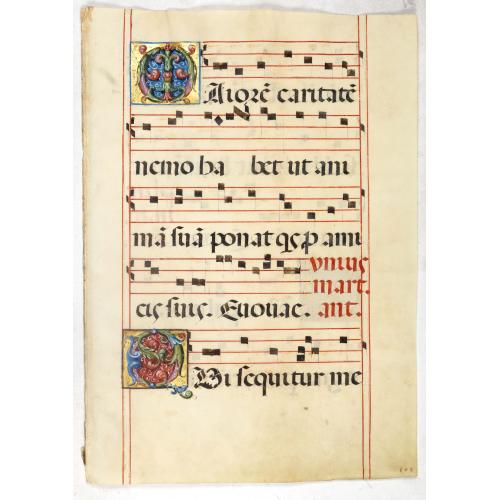 Maiorē caritatē
nemo ha bet ut ani
mā suā ponat qs p ami
vnius
mart.
cis suis. Euouae. ant.
Qui sequitur me